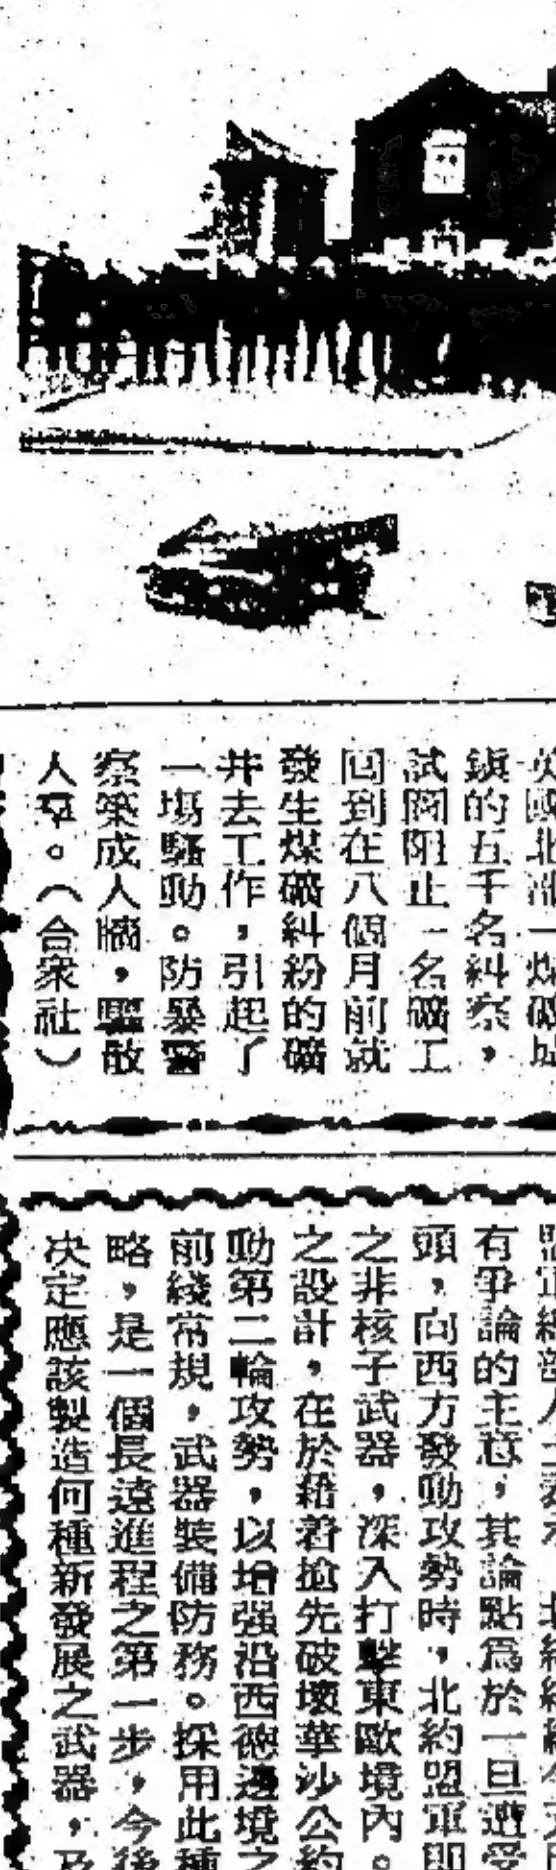 英國北部一煤礦城
鎮的五千名糾察，
試圖阻止一名礦工
回到在八個月前就
發生煤礦糾紛的礦
井去工作，引起了
一場騷動。防暴警
察築成人牆，驅散
人羣。（合衆社）
有爭論的主意，其論點爲於一旦遭受
頭，向西方發動攻勢時，北約盟軍即
之非核子武器，深入打擊東歐境內。
之設計，在於藉着搶先破壞華沙公約
動第二輪攻勢，以增强沿西德邊境之
前綫常規，武器裝備防務。採用此種
略，是一個長遠進程之第一步，今後
决定應該製造何種新發展之武器，及